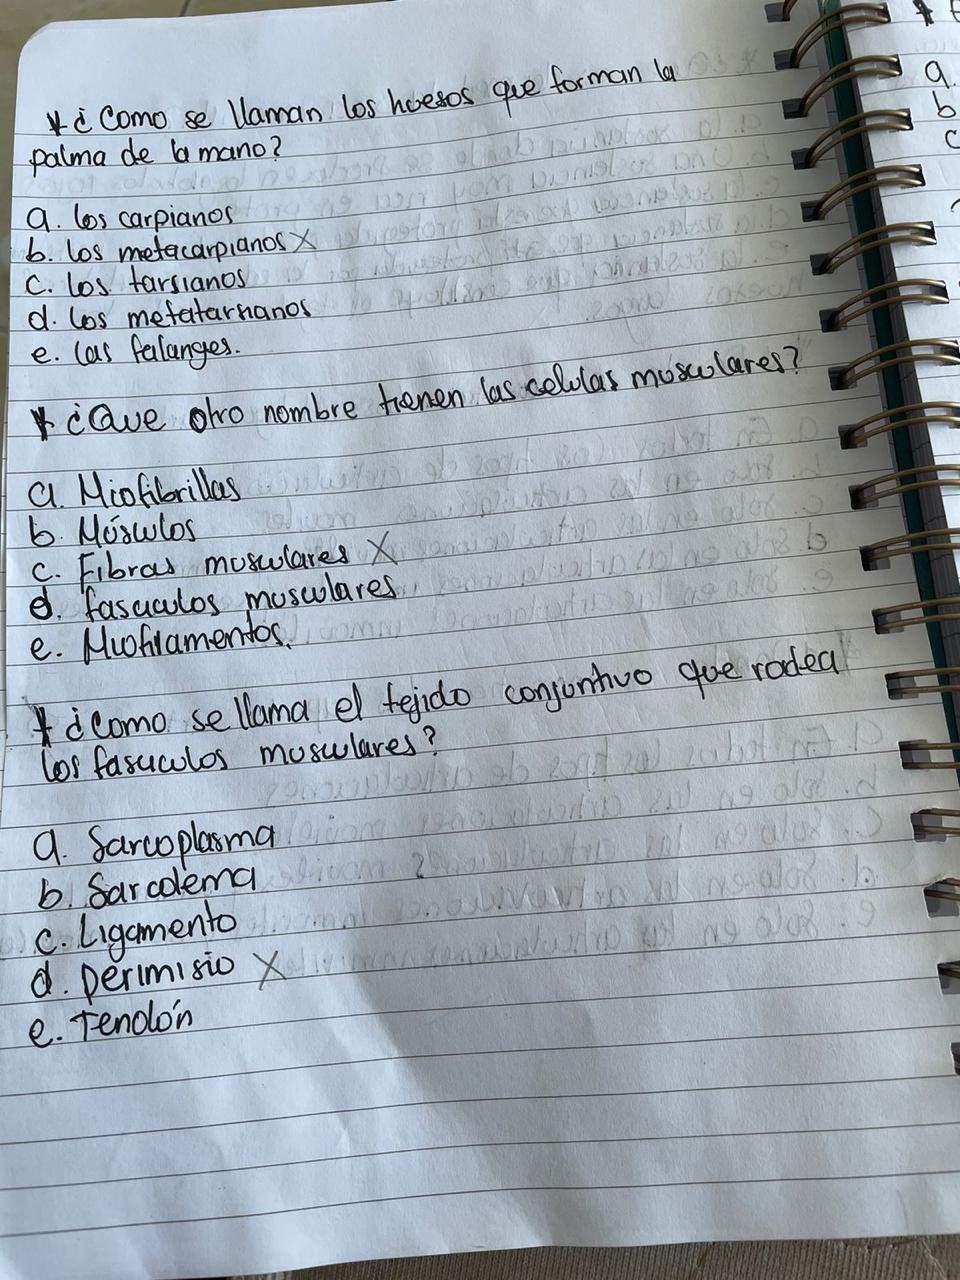 * ¿Como se llaman los huesos que forman la
palma de la mano?
a. los carpianos
b. los metacarpianos X
c. los tarsianos
d. los metatarsianos
e. las falanges.
* ¿Que otro nombre tienen las celulas musculares?
a. Miofibrillas
b. Músculos
c. Fibras musculares X
d. fasciculos musculares
e. Miofilamentos.
* ¿Como se llama el tejido conjuntivo que rodea
los fasciculos musculares?
a. Sarcoplasma
b. Sarcolema
c. Ligamento
d. perimisio X
e. Tendón
a.
b
c